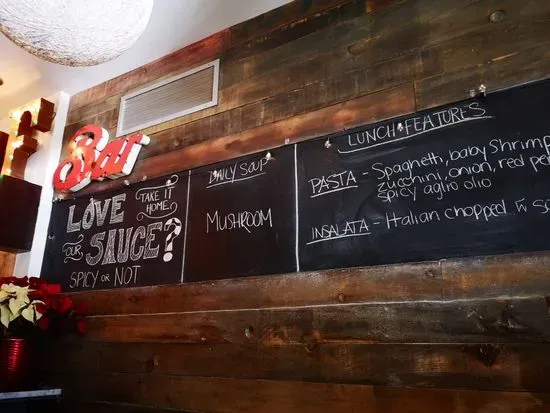 Bar
LOVE
OUR
SAUCE?
SPICY OR NOT
TAKE IT
HOME.
DAILY SOUP
MUSHROOM
LUNCH FEATURES
PASTA - Spaghetti, baby Shrimp
zucchini, onion, red
spicy aglio olio
INSALATA - Italian chopped w